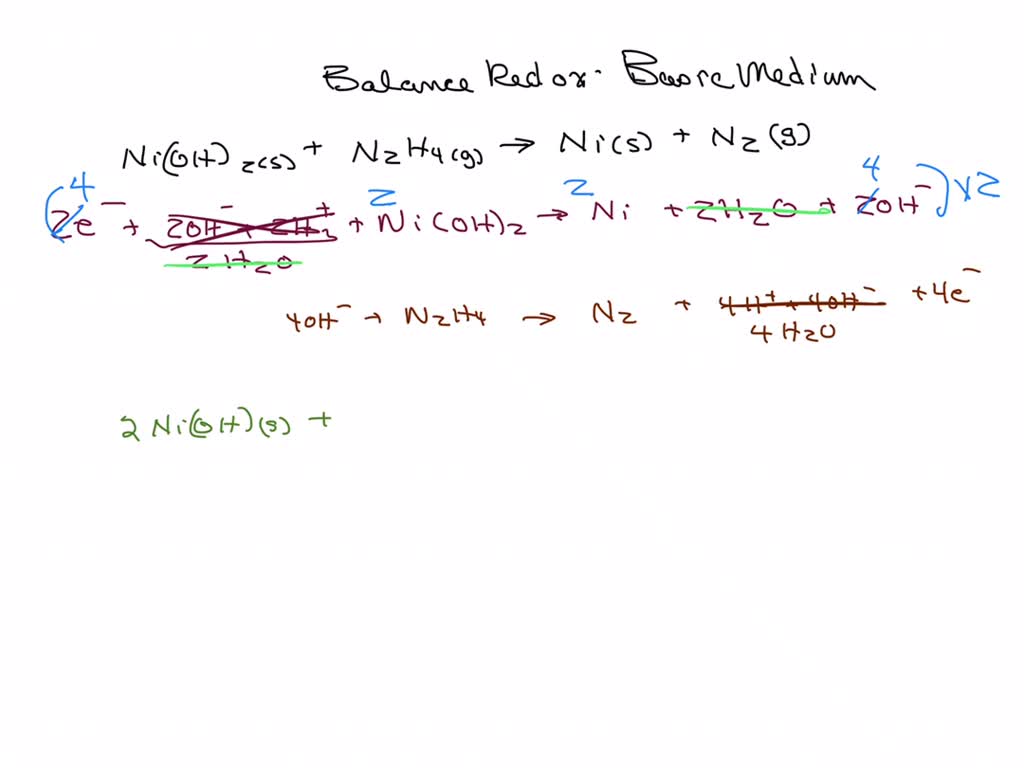 Balance Redox. Basic Medium
Ni(OH)2(s) + N2H4(g) → Ni(s) + N2(g)
4 2 2 4
(2e⁻ + 2OH⁻ + 2H⁺ + Ni(OH)2 → Ni + 2H2O + 2OH⁻) x2
2H2O
4OH⁻ + N2H4 → N2 + 4H⁺ + 4OH⁻ + 4e⁻
4H2O
2 Ni(OH)(s) +